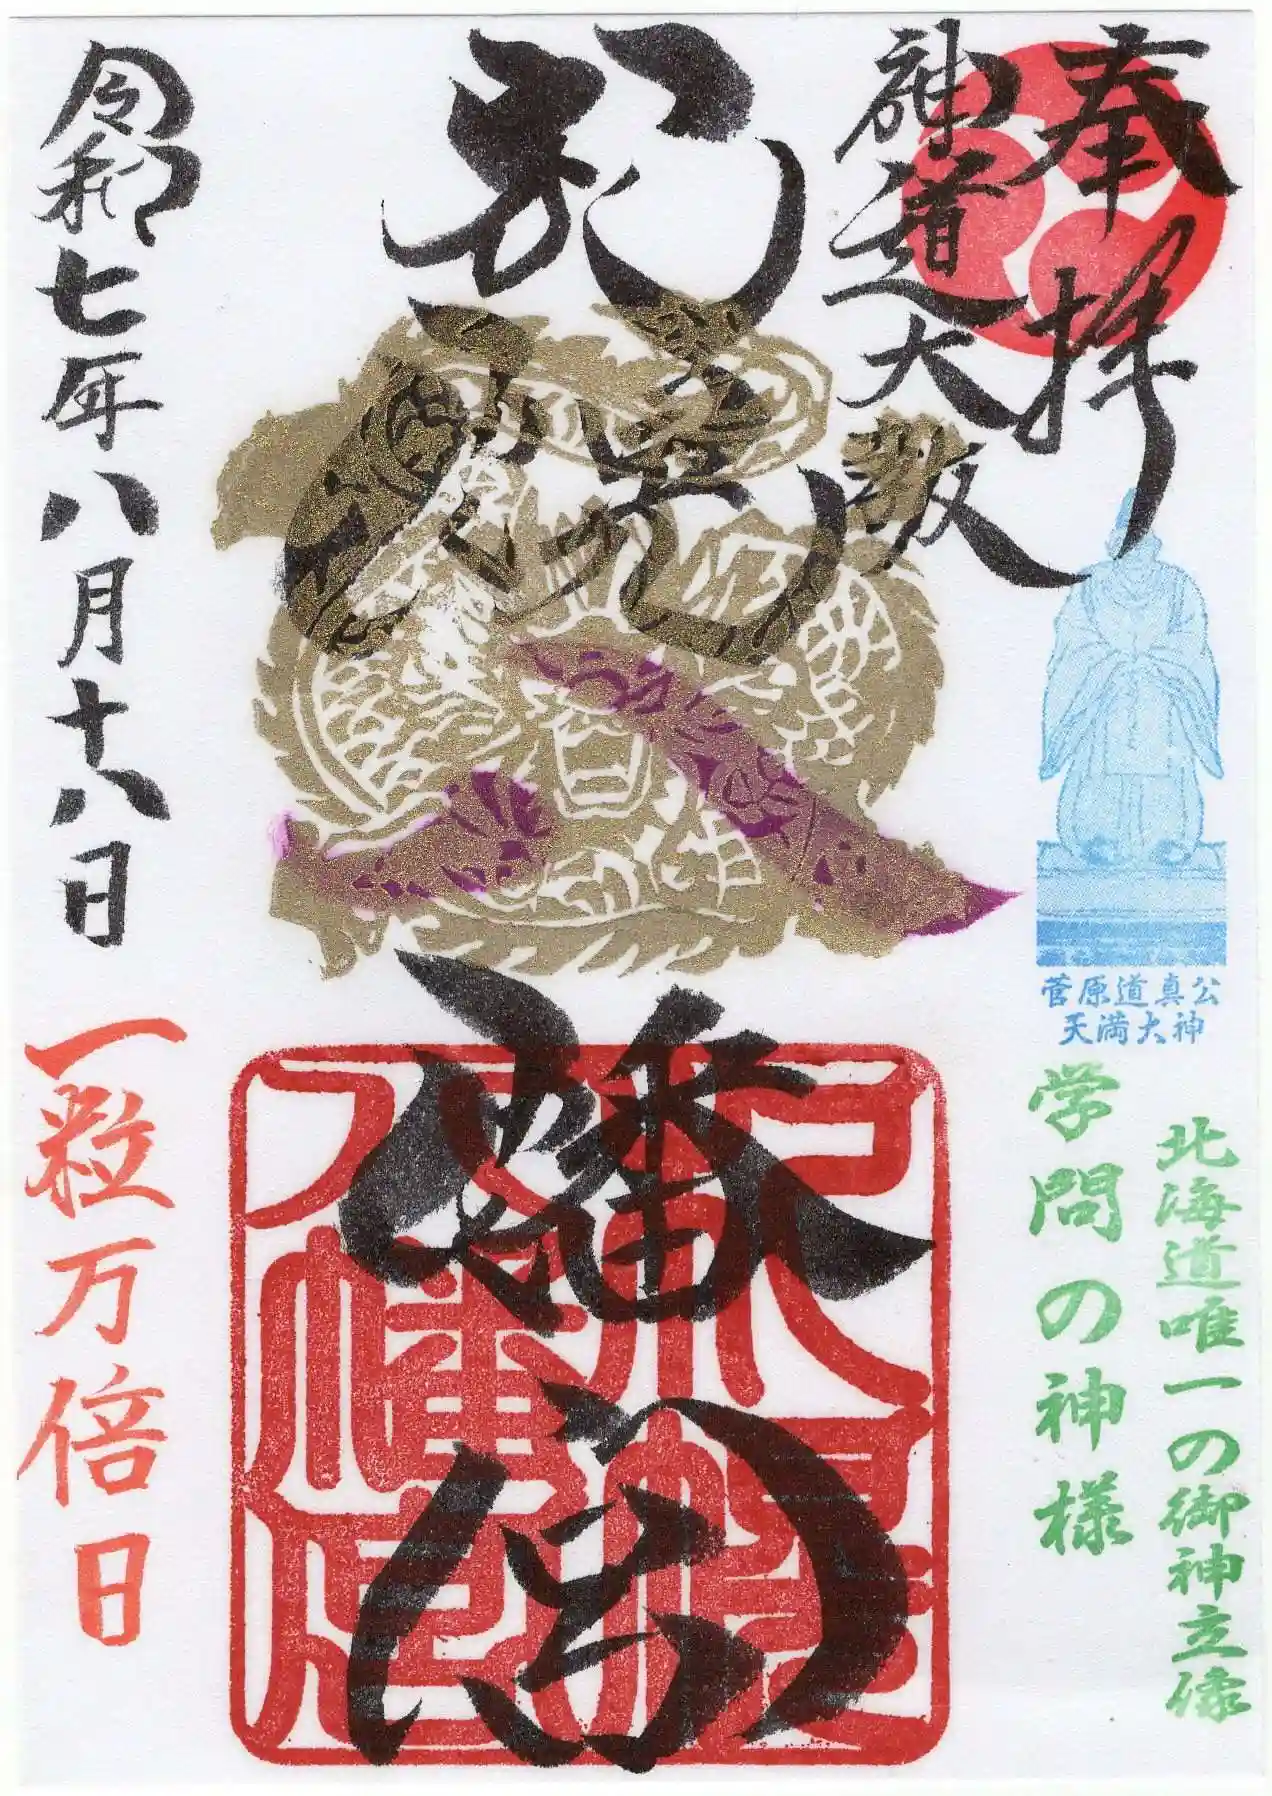 奉拝
神道大教
菅原道真公
天満大神
北海道唯一の御神立像
学問の神様
札幌八幡宮
令和七年八月十八日
一粒万倍日